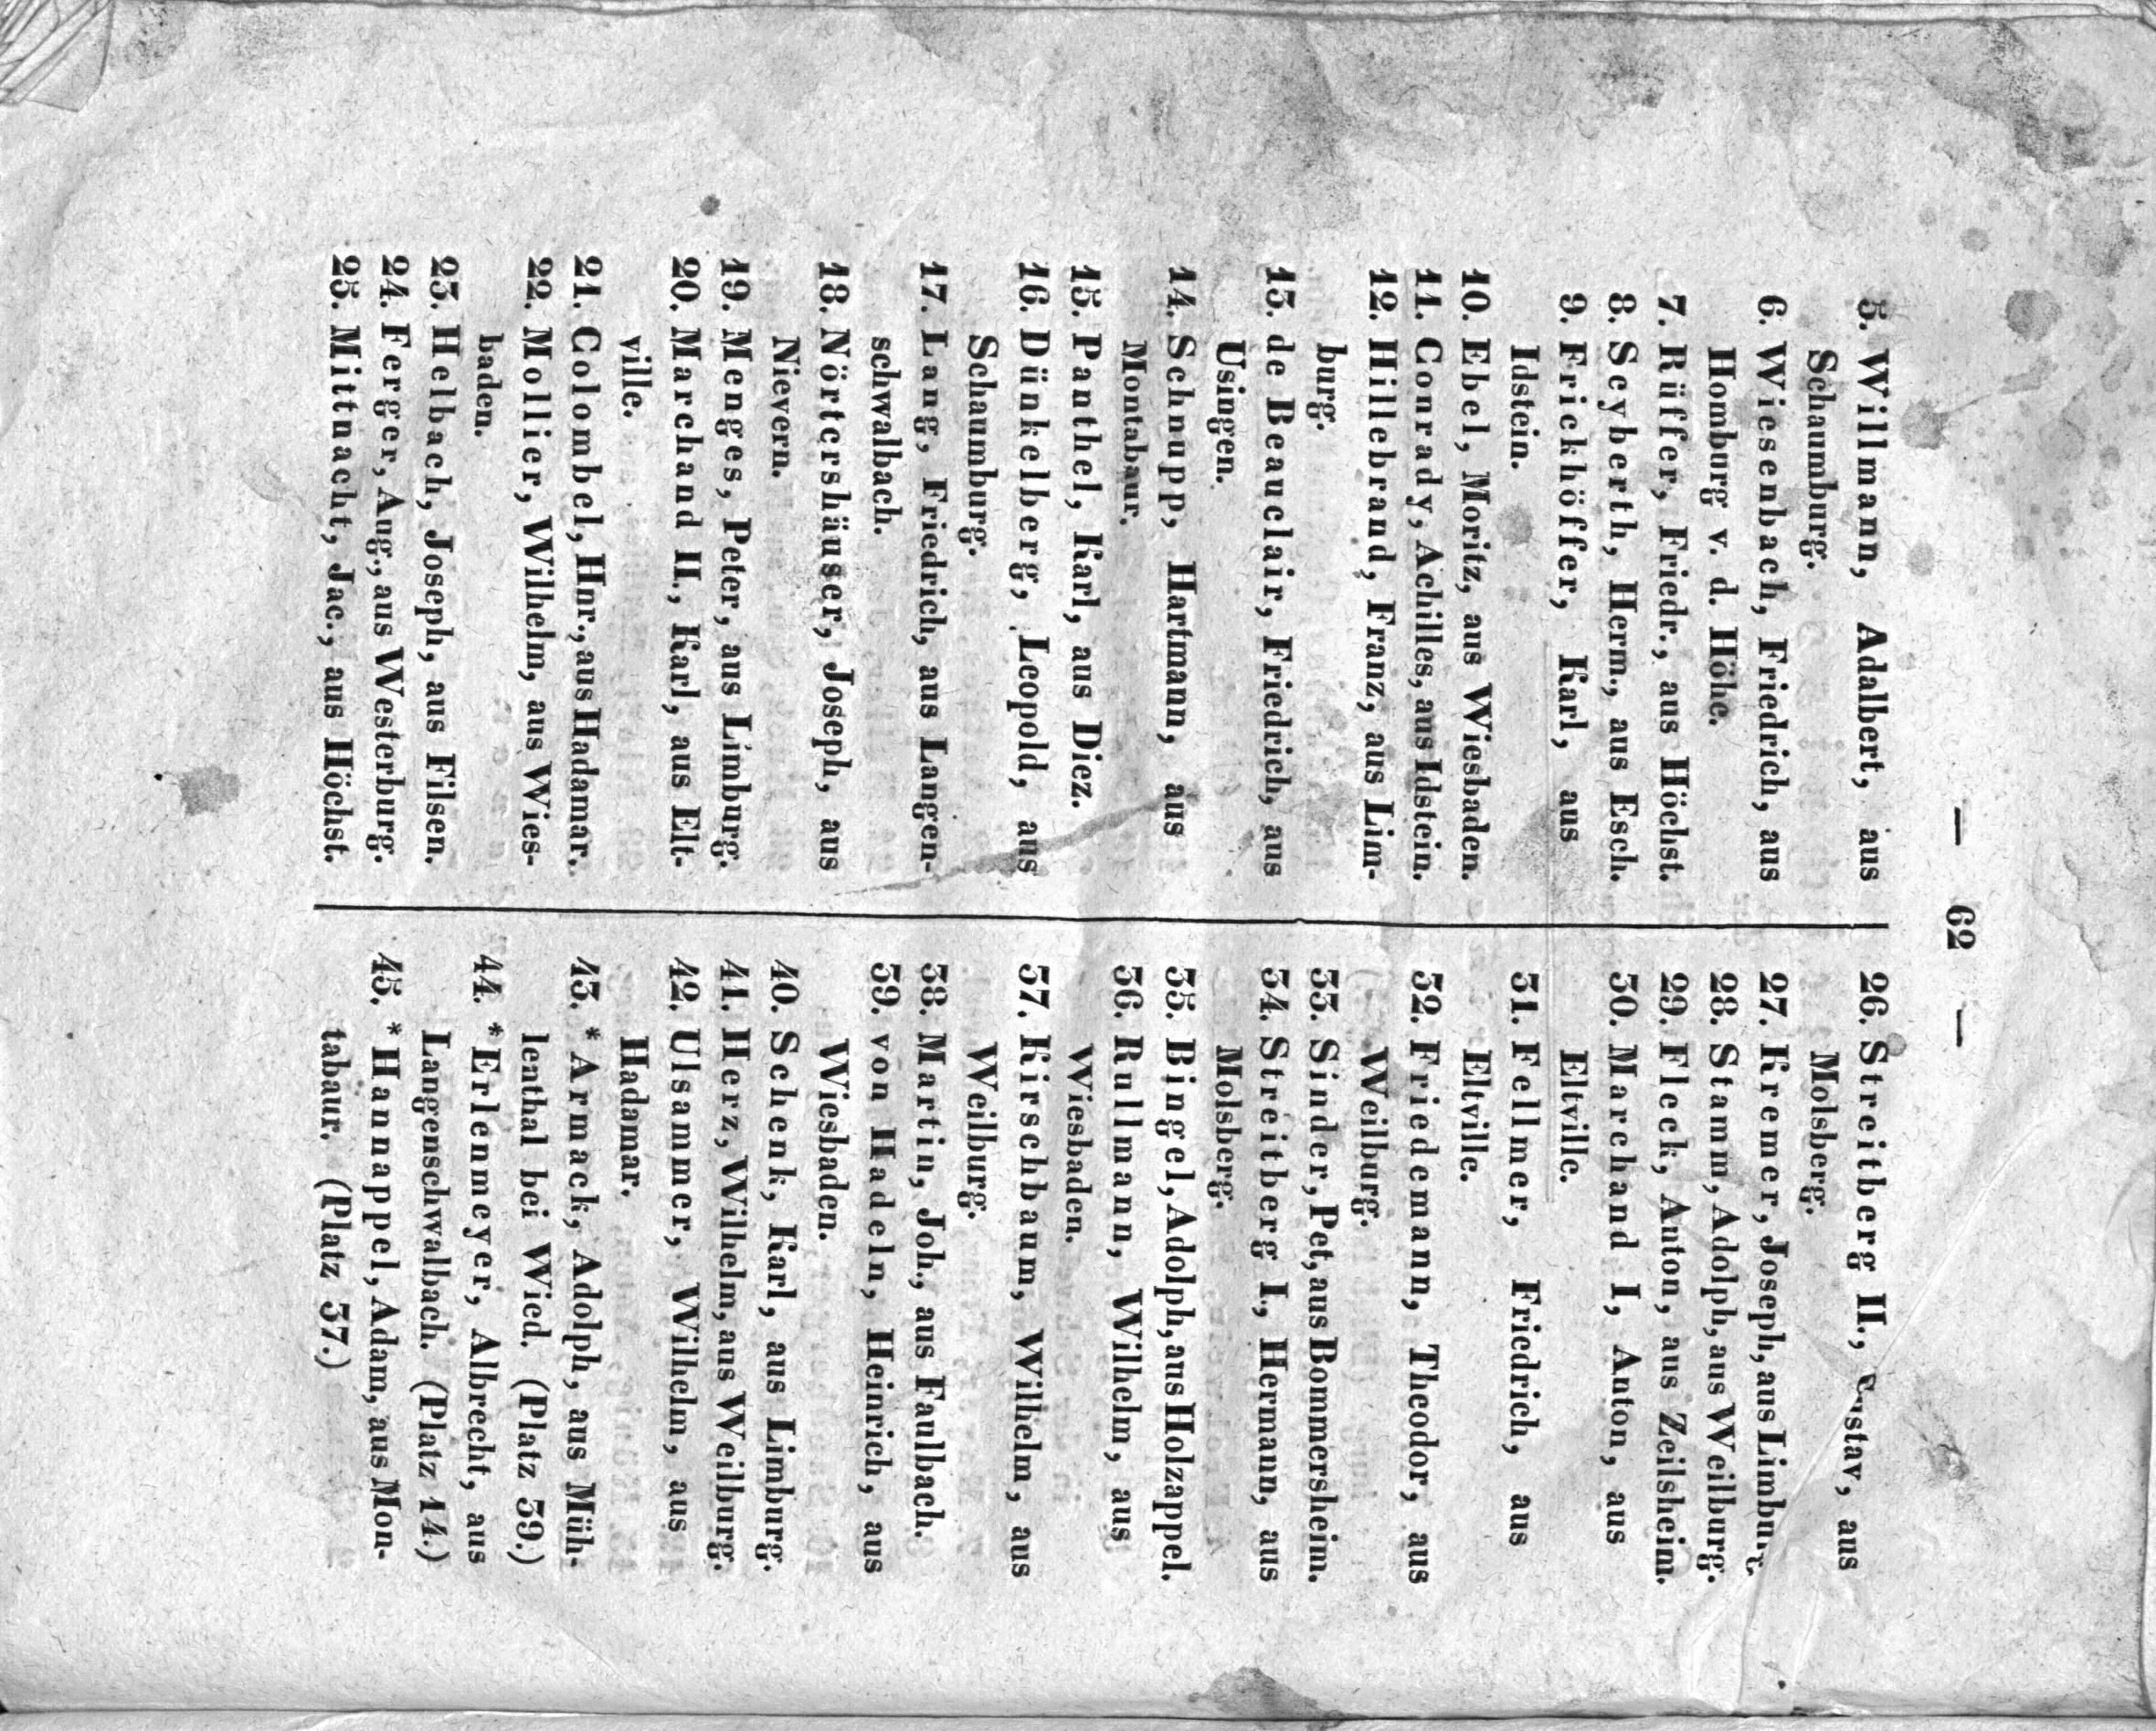 — 62 —
5. Willmann, Adalbert, aus
Schaumburg.
6. Wiesenbach, Friedrich, aus
Homburg v. d. Höhe.
7. Rüffer, Friedr., aus Höchst.
8. Seyberth, Herm., aus Esch.
9. Frickhöffer, Karl, aus
Idstein.
10. Ebel, Moritz, aus Wiesbaden.
11. Conrady, Achilles, aus Idstein.
12. Hillebrand, Franz, aus Lim-
burg.
13. de Beauclair, Friedrich, aus
Usingen.
14. Schnupp, Hartmann, aus
Montabaur.
15. Panthel, Karl, aus Diez.
16. Dünkelberg, Leopold, aus
Schaumburg.
17. Lang, Friedrich, aus Langen-
schwalbach.
18. Nörtershäuser, Joseph, aus
Nievern.
19. Menges, Peter, aus Limburg.
20. Marchand II., Karl, aus Elt-
ville.
21. Colombel, Hnr., aus Hadamar.
22. Mollier, Wilhelm, aus Wies-
baden.
23. Helbach, Joseph, aus Filsen.
24. Ferger, Aug., aus Westerburg.
25. Mittnacht, Jac., aus Höchst.
26. Streitberg II., Gustav, aus
Molsberg.
27. Kremer, Joseph, aus Limburg.
28. Stamm, Adolph, aus Weilburg.
29. Fleck, Anton, aus Zeilsheim.
30. Marchand I, Anton, aus
Eltville.
31. Fellmer, Friedrich, aus
Eltville.
32. Friedemann, Theodor, aus
Weilburg.
33. Sinder, Pet, aus Bommersheim.
34. Streitberg I., Hermann, aus
Molsberg.
35. Bingel, Adolph, aus Holzappel.
36. Rullmann, Wilhelm, aus
Wiesbaden.
37. Kirschbaum, Wilhelm, aus
Weilburg.
38. Martin, Joh., aus Faulbach.
39. von Hadeln, Heinrich, aus
Wiesbaden.
40. Schenk, Karl, aus Limburg.
41. Herz, Wilhelm, aus Weilburg.
42. Ulsammer, Wilhelm, aus
Hadamar.
43. * Armack, Adolph, aus Müh-
lenthal bei Wied. (Platz 39.)
44. * Erlenmeyer, Albrecht, aus
Langenschwalbach. (Platz 14.)
45. * Hannappel, Adam, aus Mon-
tabaur. (Platz 37.)